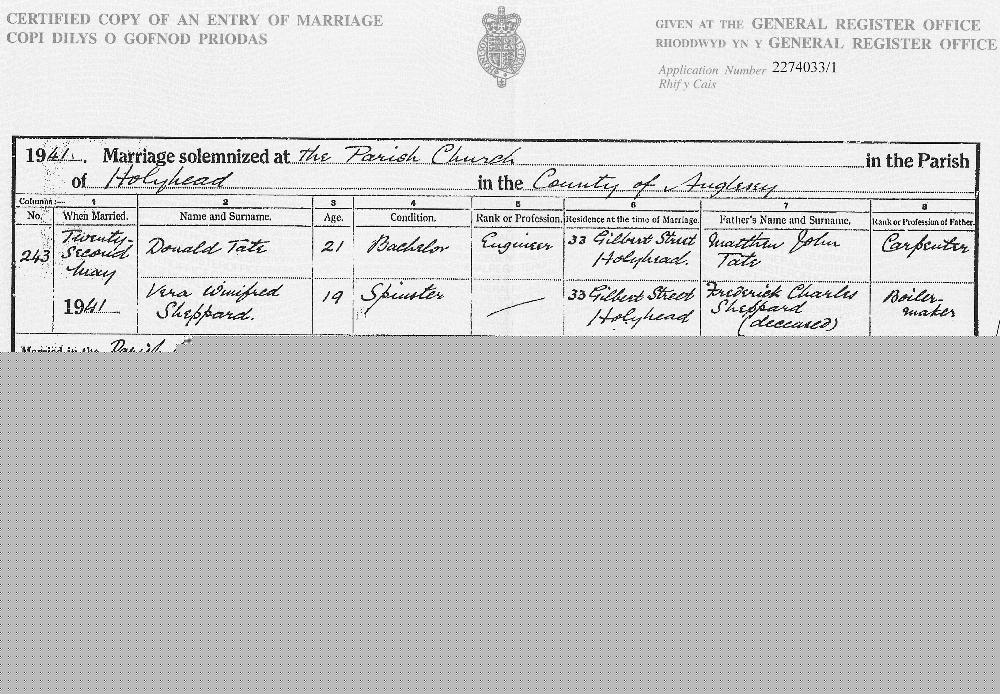 CERTIFIED COPY OF AN ENTRY OF MARRIAGE
COPI DILYS O GOFNOD PRIODAS
GIVEN AT THE GENERAL REGISTER OFFICE
RHODDWYD YN Y GENERAL REGISTER OFFICE
Application Number 2274033/1
Rhif y Cais
1941. Marriage solemnized at the Parish Church in the Parish
of Holyhead in the County of Anglesey
Columns:— 1 2 3 4 5 6 7 8
No. When Married. Name and Surname. Age. Condition. Rank or Profession. Residence at the time of Marriage. Father's Name and Surname. Rank or Profession of Father.
243
Twenty-
Second
May
1941
Donald Tate
21
Bachelor
Engineer
33 Gilbert Street
Holyhead.
Matthew John
Tate
Carpenter
Vera Winifred
Sheppard.
19
Spinster
33 Gilbert Street
Holyhead
Frederick Charles
Sheppard
(deceased)
Boiler-
maker
Married in the Parish